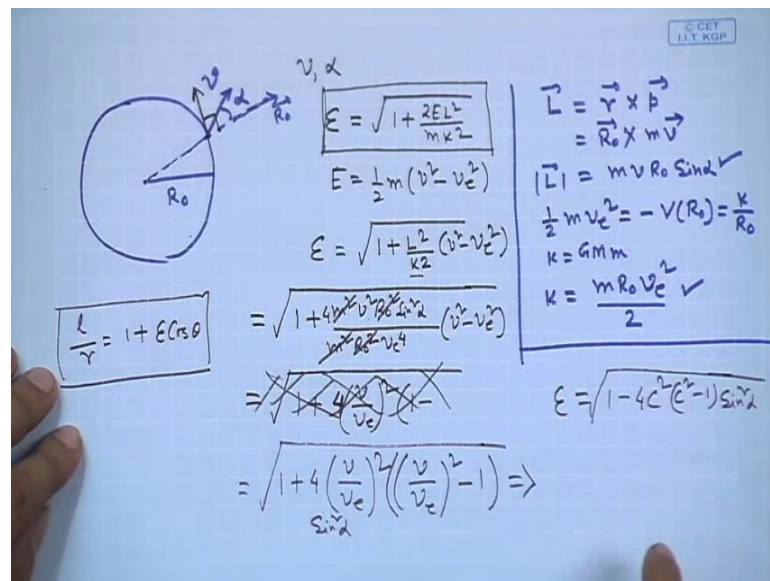 © CET
I.I.T. KGP
v, α
v
α
R₀
R₀
ε = √(1 + 2EL²/mK²)
E = ½ m (v² - vₑ²)
ε = √(1 + L²/K² (v² - vₑ²))
= √(1 + 4m²v²R₀² sin²α / m²R₀²vₑ⁴ (v² - vₑ²))
= √(1 + 4(v/vₑ)² (1 -
= √(1 + 4 (v/vₑ)² ((v/vₑ)² - 1)) ⇒
sin²α
l/r = 1 + ε Cos θ
L⃗ = r⃗ × p⃗
= R⃗₀ × m v⃗
|L⃗| = m v R₀ Sin α ✓
½ m vₑ² = - V(R₀) = K/R₀
K = GMm
K = m R₀ vₑ² / 2 ✓
ε = √(1 - 4c² (c² - 1) sin²α)